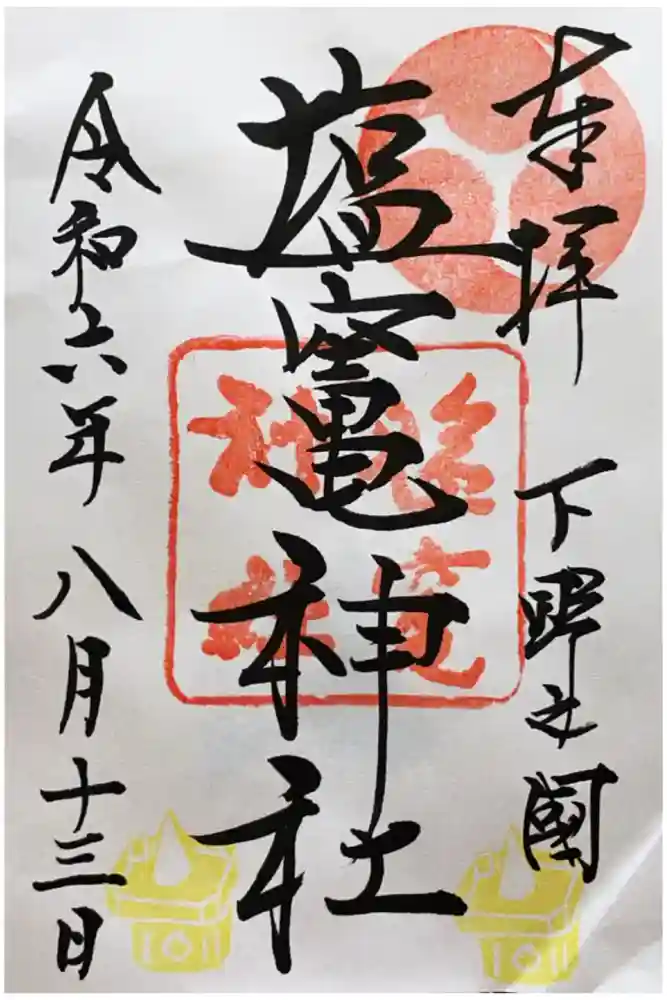 奉拝 下野之國
塩竃神社
令和六年八月十三日